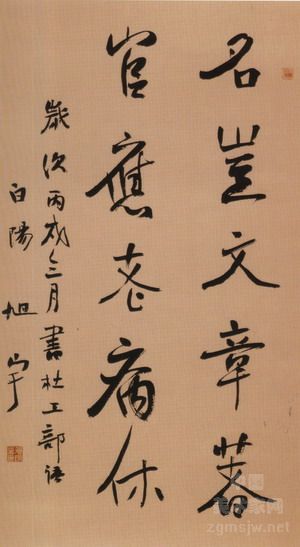 名岂文章著
官應老病休
歲次丙戌三月書杜工部語
白陽旭宇
zgmsjw.net.cn